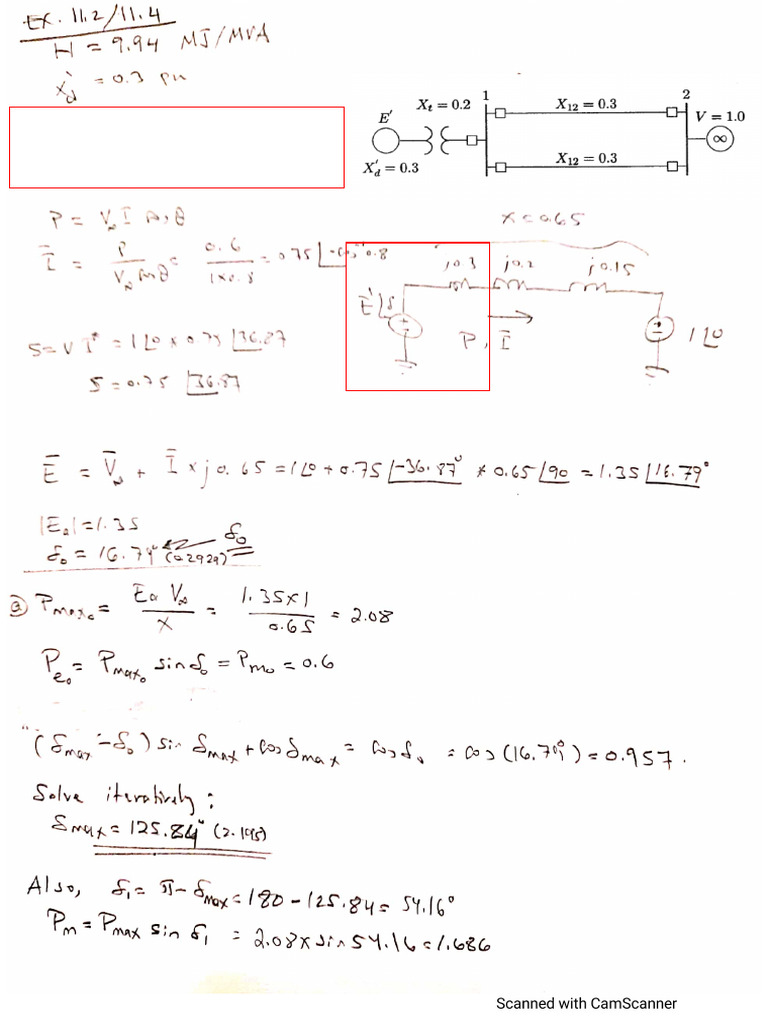 Ex. 11.2/11.4
H = 9.94 MJ/MVA
X'd = 0.3 pu
E'
Xt = 0.2
1
X12 = 0.3
2
V = 1.0
∞
X'd = 0.3
X12 = 0.3
P = V∞ I cos θ
X = 0.65
Ī = P / V∞ cos θ = 0.6 / 1×0.8 = 0.75 ∠-cos⁻¹0.8
j0.3 j0.2 j0.15
E'∠δ
P, Ī
1∠0
S = V I* = 1∠0 × 0.75 ∠36.87
S = 0.75 ∠36.87
Ē = V̄∞ + Ī × j0.65 = 1∠0 + 0.75∠-36.87° * 0.65∠90 = 1.35∠16.79°
|Ea| = 1.35
δ0 = 16.79° (0.2929) ← δ0
ⓐ Pmax0 = Ea V∞ / X = 1.35×1 / 0.65 = 2.08
Pe0 = Pmax0 sin δ0 = Pm0 = 0.6
(δmax - δ0) sin δmax + cos δmax = cos δ0 = cos(16.79°) = 0.957.
Solve iteratively:
δmax = 125.84° (2.195)
Also, δ1 = π - δmax = 180 - 125.84 = 54.16°
Pm = Pmax sin δ1 = 2.08 x sin 54.16 = 1.686
Scanned with CamScanner